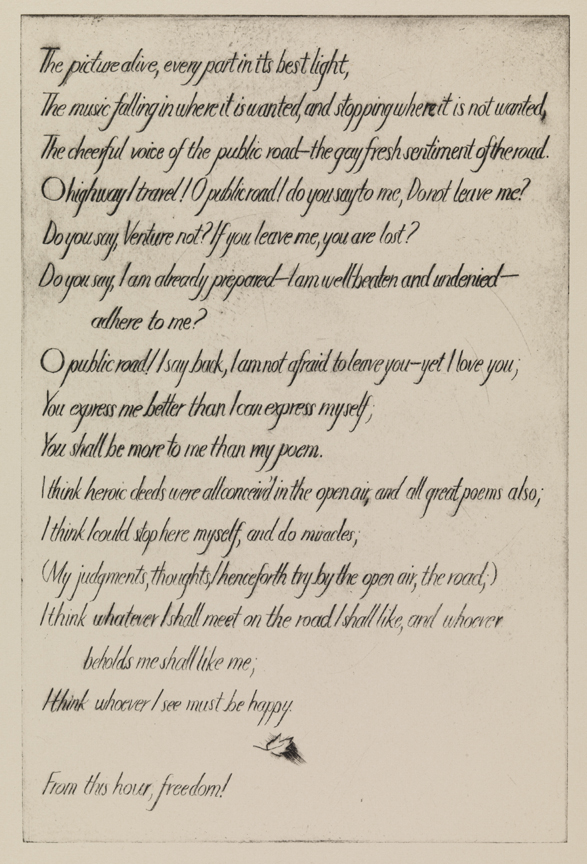 The picture alive, every part in its best light,
The music falling in where it is wanted, and stopping where it is not wanted,
The cheerful voice of the public road—the gay fresh sentiment of the road.
O highway I travel! O public road! do you say to me, Do not leave me?
Do you say, Venture not? If you leave me, you are lost?
Do you say, I am already prepared—I am well-beaten and undenied—
adhere to me?
O public road! I say back, I am not afraid to leave you—yet I love you;
You express me better than I can express myself;
You shall be more to me than my poem.
I think heroic deeds were all conceiv'd in the open air, and all great poems also;
I think I could stop here myself, and do miracles;
(My judgments, thoughts, I henceforth try by the open air, the road;)
I think whatever I shall meet on the road I shall like, and whoever
beholds me shall like me;
I think whoever I see must be happy.
From this hour, freedom!